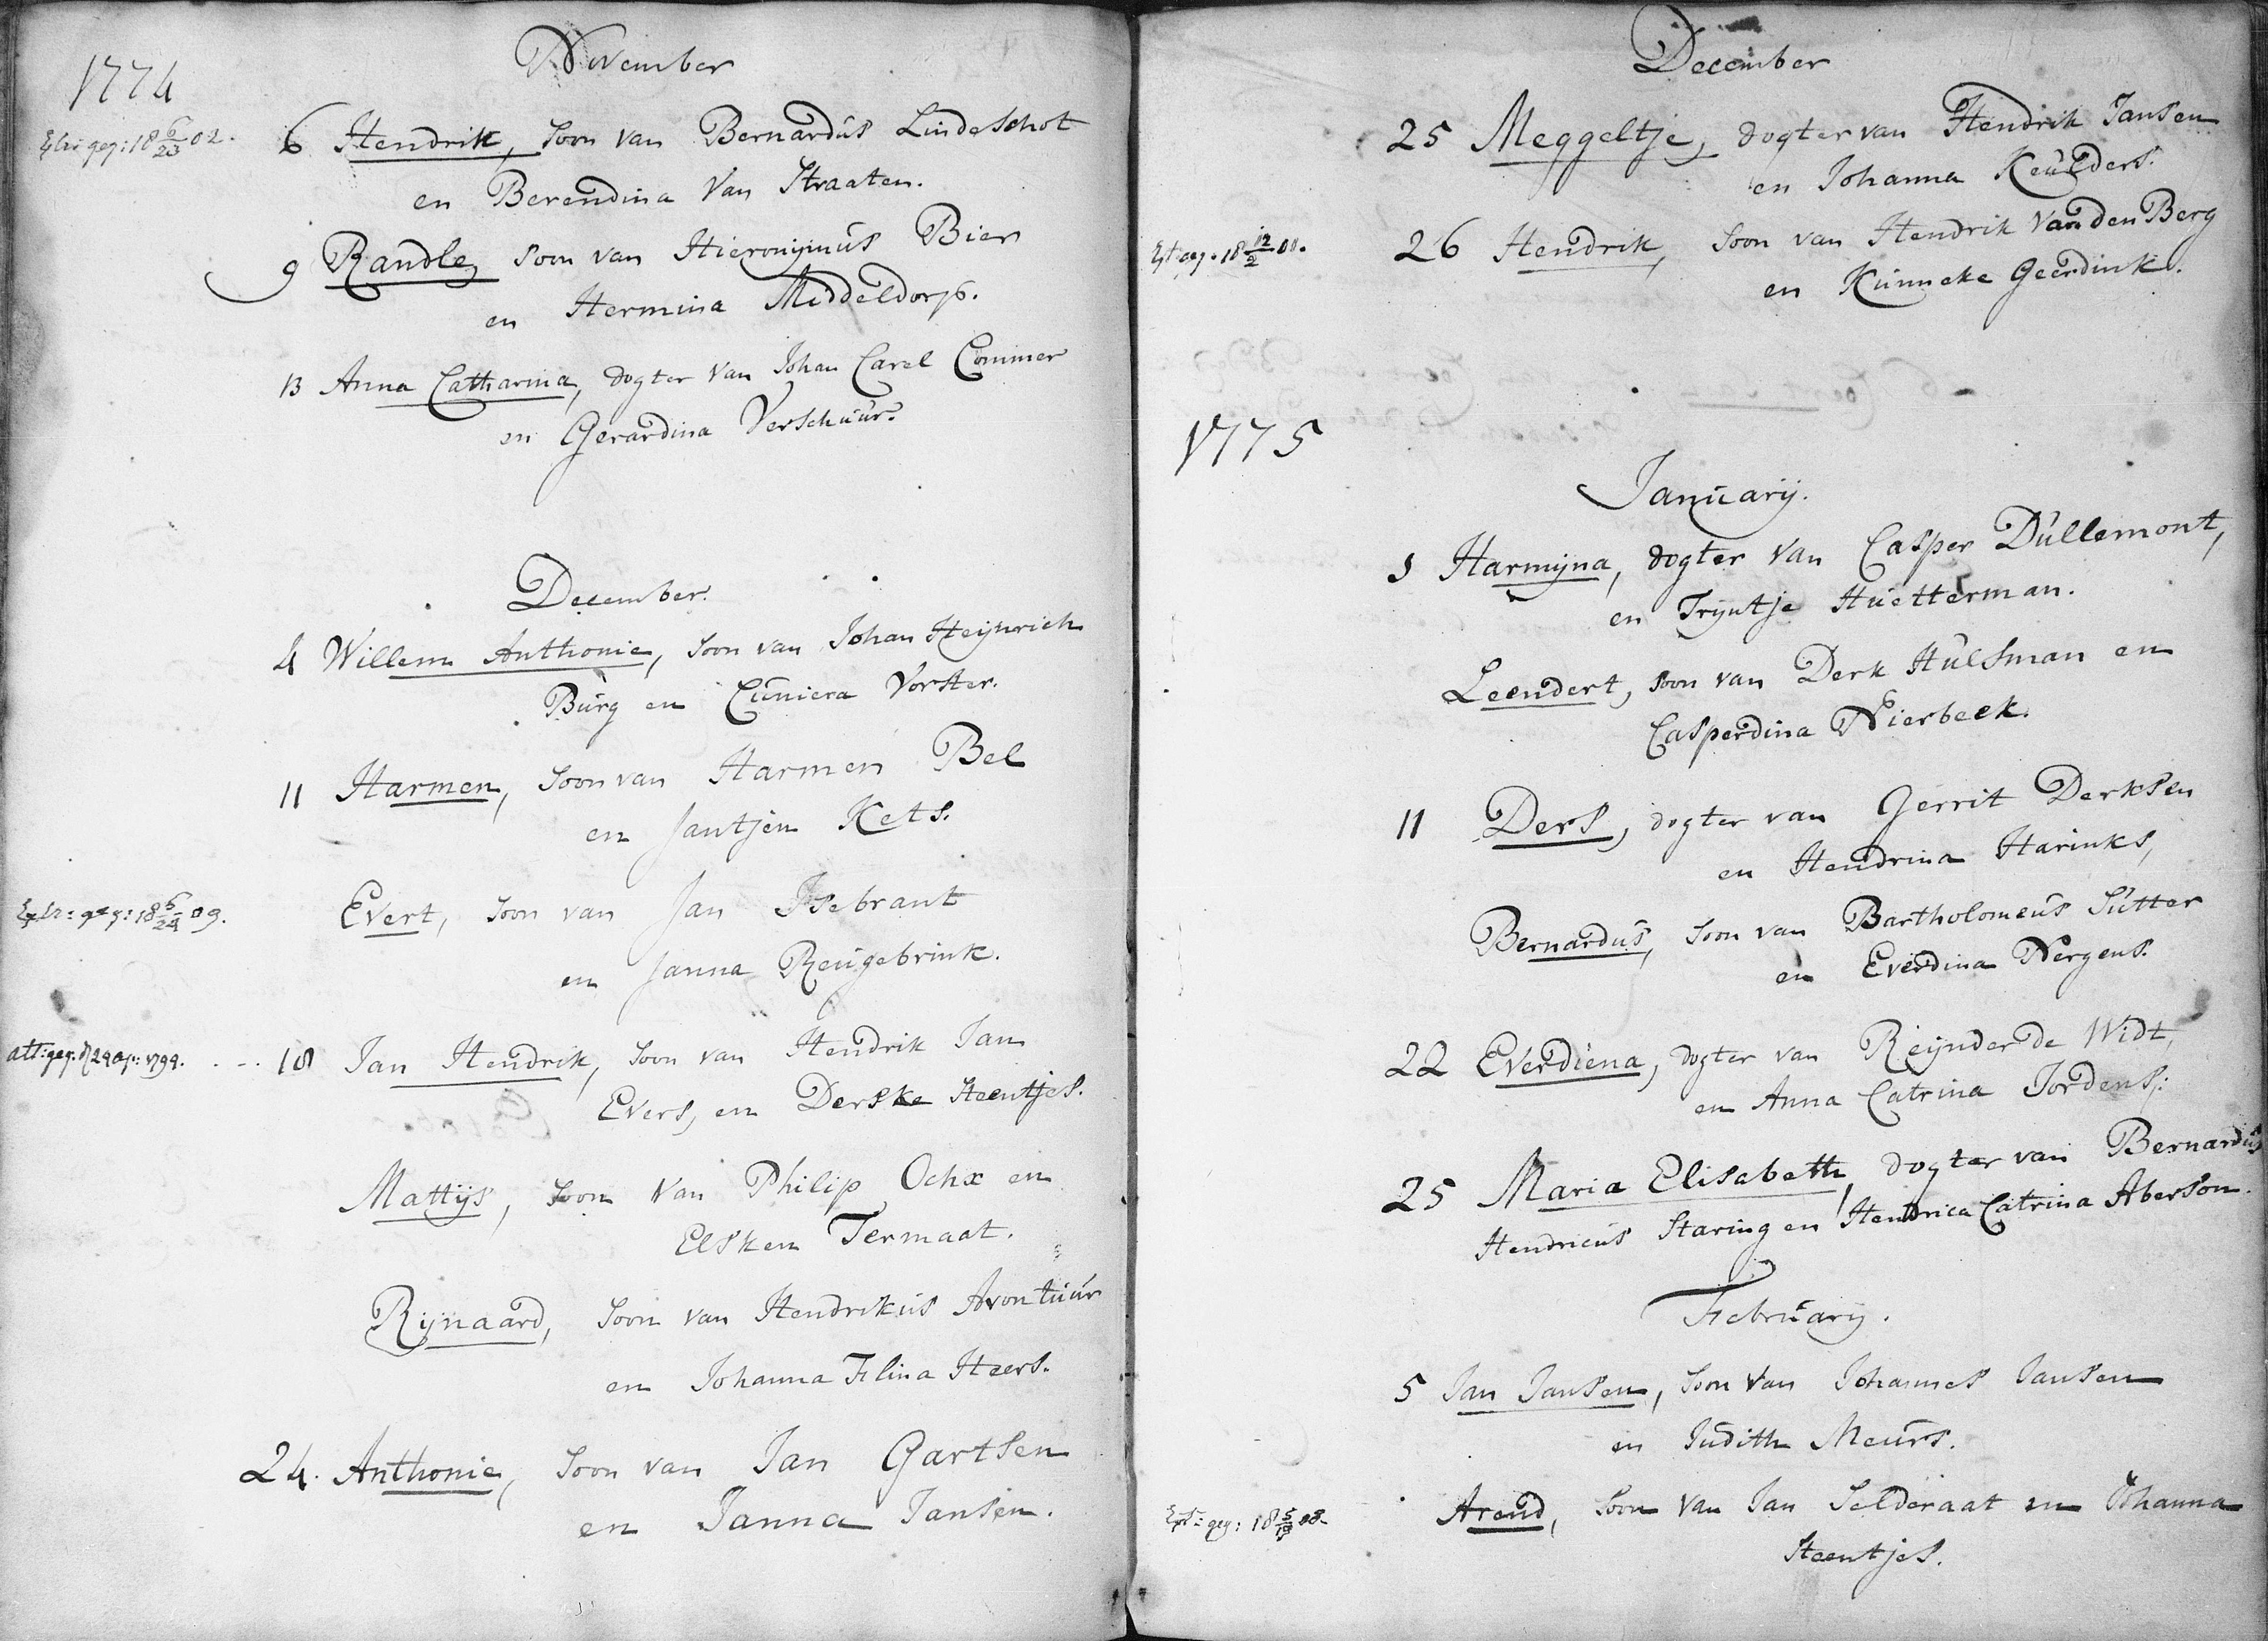 November
1774
Extr: geg: 18 6/23 02.
6 Hendrik, Soon van Bernardus Lindeschot
en Berendina Van Straaten.
9 Randle, Soon van Hieronijmus Bier
en Hermina Middeldorp.
13 Anna Catharina, dogter Van Johan Carel Commer
en Gerardina Verschuur.
December.
4 Willem Anthonie, Soon van Johan Heijnrich
Burg en Cuniera Vorster.
11 Harmen, Soon van Harmen Bel
en Jantjen Kets.
Extr: geg: 18 6/24 09.
Evert, Soon van Jan Isebrant
en Janna Reugebrink.
att: geg. d 24 ap: 1794.
18 Jan Hendrik, Soon van Hendrik Jan
Evers, en Derske Steentjes.
Mattijs, Soon Van Philip Ochx en
Elsken Termaat.
Rijnaard, Soon van Hendrikus Avontuur
en Johanna Flina Heers.
24. Anthonie, Soon van Jan Gartsen
en Janna Jansen.
December
25 Meggeltje, dogter van Hendrik Jansen
en Johanna Keulders.
Ext: geg: 18 12/2 01.
26 Hendrik, Soon van Hendrik Van den Berg
en Kunneke Geerdink.
1775
January.
1 Harmijna, dogter Van Casper Dullemont,
en Tryntje Huetterman.
Leendert, Soon van Derk Hulsman en
Casperdina Nierbeek.
11 Ders, dogter van Gerrit Derksen
en Hendrina Harinks,
Bernardus, Soon van Bartholomeus Sutter
en Everdina Nergens.
22 Everdiena, dogter van Reijnder de Widt,
en Anna Catrina Jordens:
25 Maria Elisabeth, dogter van Bernardus
Hendricus Staring en Hendrica Catrina Aberson.
February.
5 Jan Jansen, Soon Van Johannes Jansen
en Judith Meurs.
Ext: geg: 18 5/19 08.
Arend, Soon Van Jan Selderaat en Johanna
Steentjes.